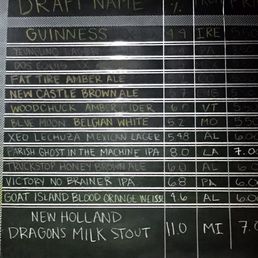 DRAFT NAME %
GUINNESS 4.4 IRE 5.
YEUNGLING
DOS EQUIS
FAT TIRE AMBER ALE CO
NEW CASTLE BROWN ALE
WOODCHUCK AMBER CIDER 6.0 VT 5.5
BLUE MOON BELGIAN WHITE 5.2 MO 5.5
XEO LECHUZA MEXICAN LAGER 5.98 AL 6.0
PARISH GHOST IN THE MACHINE IPA 8.0 LA 7.0
TRUCKSTOP HONEY BROWN ALE 6.0 AL 6.
VICTORY NO BRAINER IPA 6.8 PA 6.
GOAT ISLAND BLOOD ORANGE WEISSE 4.6 AL 6.0
NEW HOLLAND
DRAGONS MILK STOUT 11.0 MI 7.